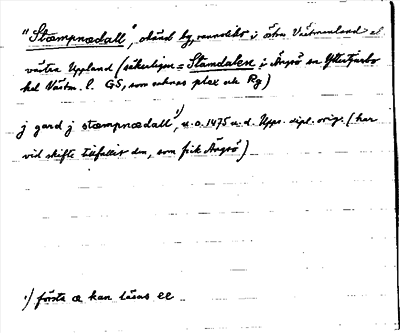 "Stæmpnædall", okänd by, sannolikt i östra Västmanland el.
västra Uppland (säkerligen = Stamdalen i Ängsö sn Yttertjurbo
hd Västm. l. GS, som saknas plac och Rg)
j gard j stæmpnædall¹⁾, u.o. 1475 u.d. Upps. dipl. orig. (har
vid skifte tillfallit den, som fick Ängsö)
¹) första æ kan läsas ee